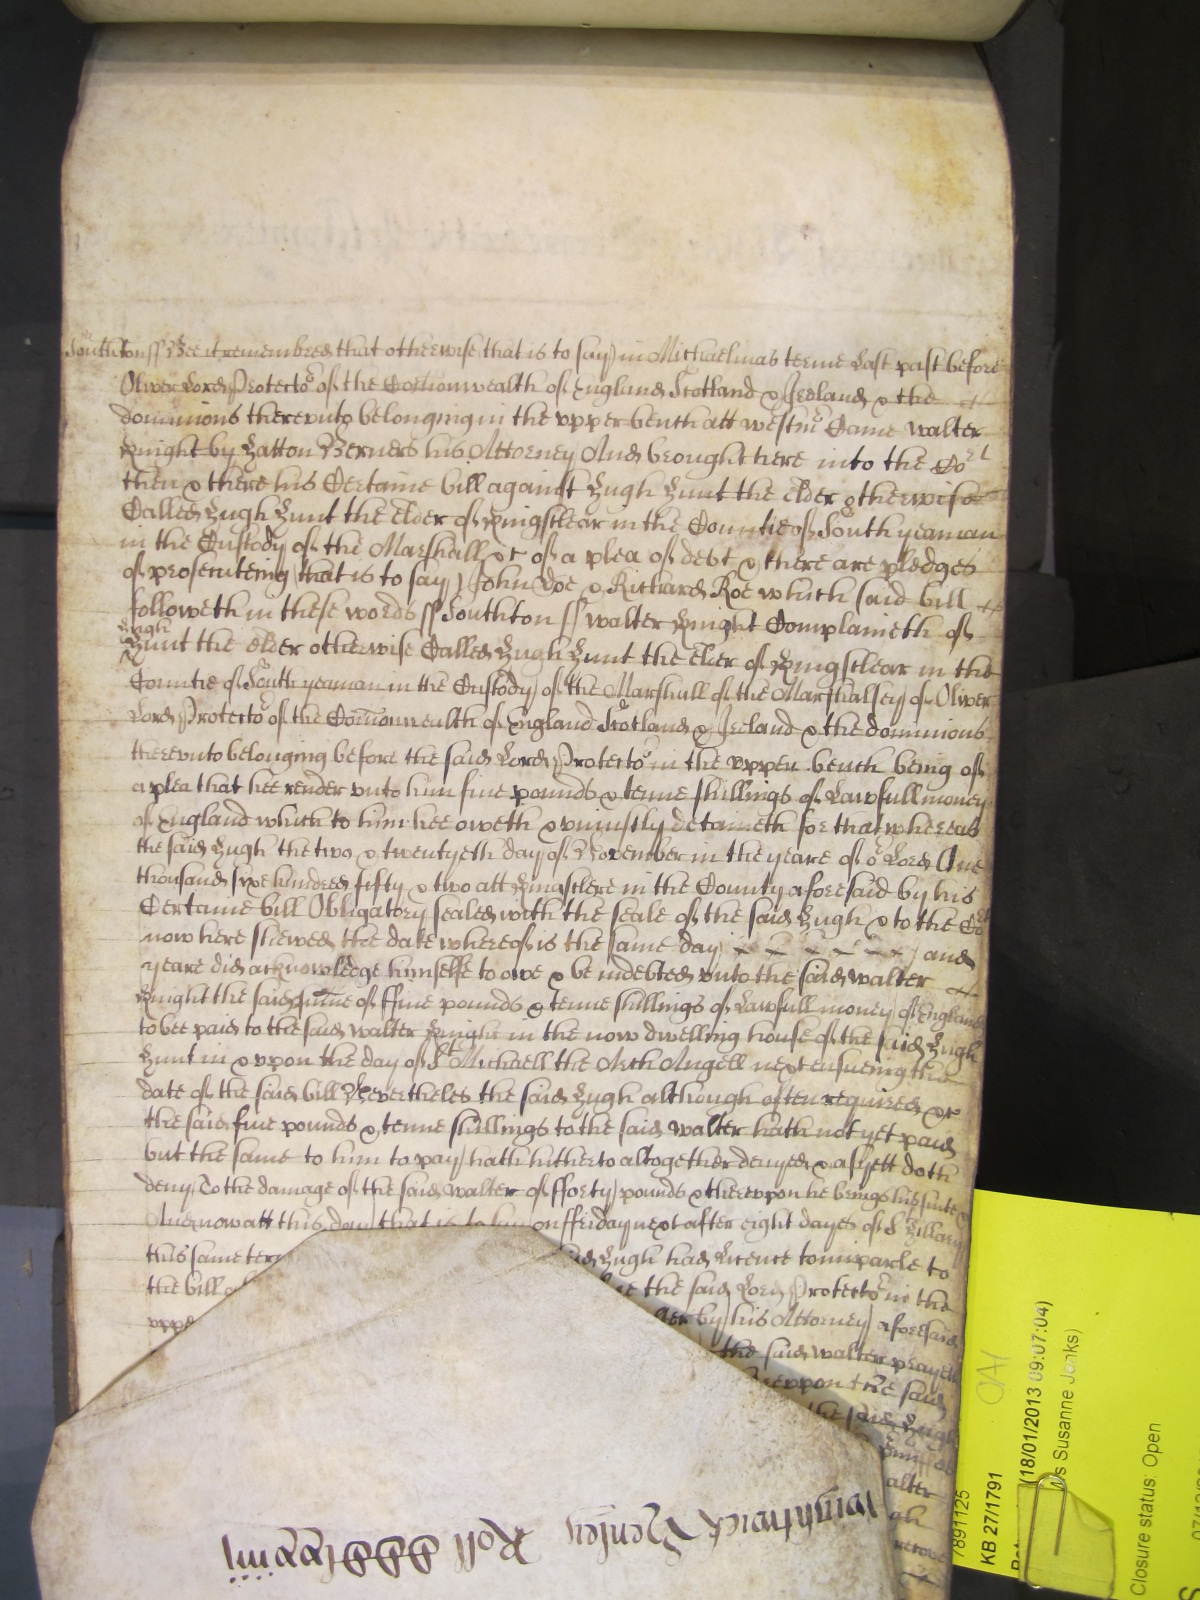 Southton ss Bee it remembred that otherwise that is to say in Michaelmas terme Last past before
Oliver Lord Protector of the Comonwealth of England Scotland & Ireland & the
dominions thereunto belonging in the upper bench att Westmr Came Walter
Knight by Hatton Berners his Attorney And brought here into the Cort
then & there his Certaine bill against Hugh Hunt the elder otherwise
Called Hugh Hunt the elder of Kingscleare in the Countie of South yeaman
in the Custody of the Marshall &c of a plea of debt & there are pledges
of prosecuteing that is to say John Doe & Richard Roe which said bill
followeth in these words ss Southton ss Walter Knight Complaineth of
Hugh
Hunt the elder otherwise Called Hugh Hunt the elder of Kingsclear in the
Countie of South yeaman in the Custody of the Marshall of the Marshalsey of Oliver
Lord Protector of the Comonwealth of England Scotland & Ireland & the dominions
thereunto belonging before the said Lord Protector in the upper bench being of
a plea that hee render unto him five pounds & tenne shillings of Lawfull money
of England which to him hee oweth & uniustly detaineth for that whereas
the said Hugh the two & twentyeth day of November in the yeare of or Lord One
thousand sixe hundred fifty & two att Kingsclere in the County aforesaid by his
Certaine bill Obligatory sealed with the seale of the said Hugh & to the Cort
now here shewed the date whereof is the same day and
yeare did acknowledge himselfe to owe & be indebted unto the said Walter
Knight the said sume of ffive pounds & tenne shillings of Lawfull money of England
to bee paid to the said Walter Knight in the now dwelling house of the said Hugh
Hunt in & upon the day of St Michaell the Arch Angell next ensueing the
date of the said bill Neverthelesse the said Hugh although often required &c
the said five pounds & tenne shillings to the said Walter hath not yet paid
but the same to him to pay hath hitherto altogether denyed & as yett doth
deny To the damage of the said Walter of fforty pounds & thereupon he brings his suite &c
And now att this day that is to say on ffriday next after eight dayes of St Hillary
this same terme said Hugh had Licence to imparle to
the bill the said Lord Protector in the
uppe by his Attorney aforesaid
the said Walter prayeth
upon the said
the said Hugh
alter
Wightwick Henley Roll
7891125
KB 27/1791
(18/01/2013 09:07:04)
s Susanne Jenks)
Closure status: Open